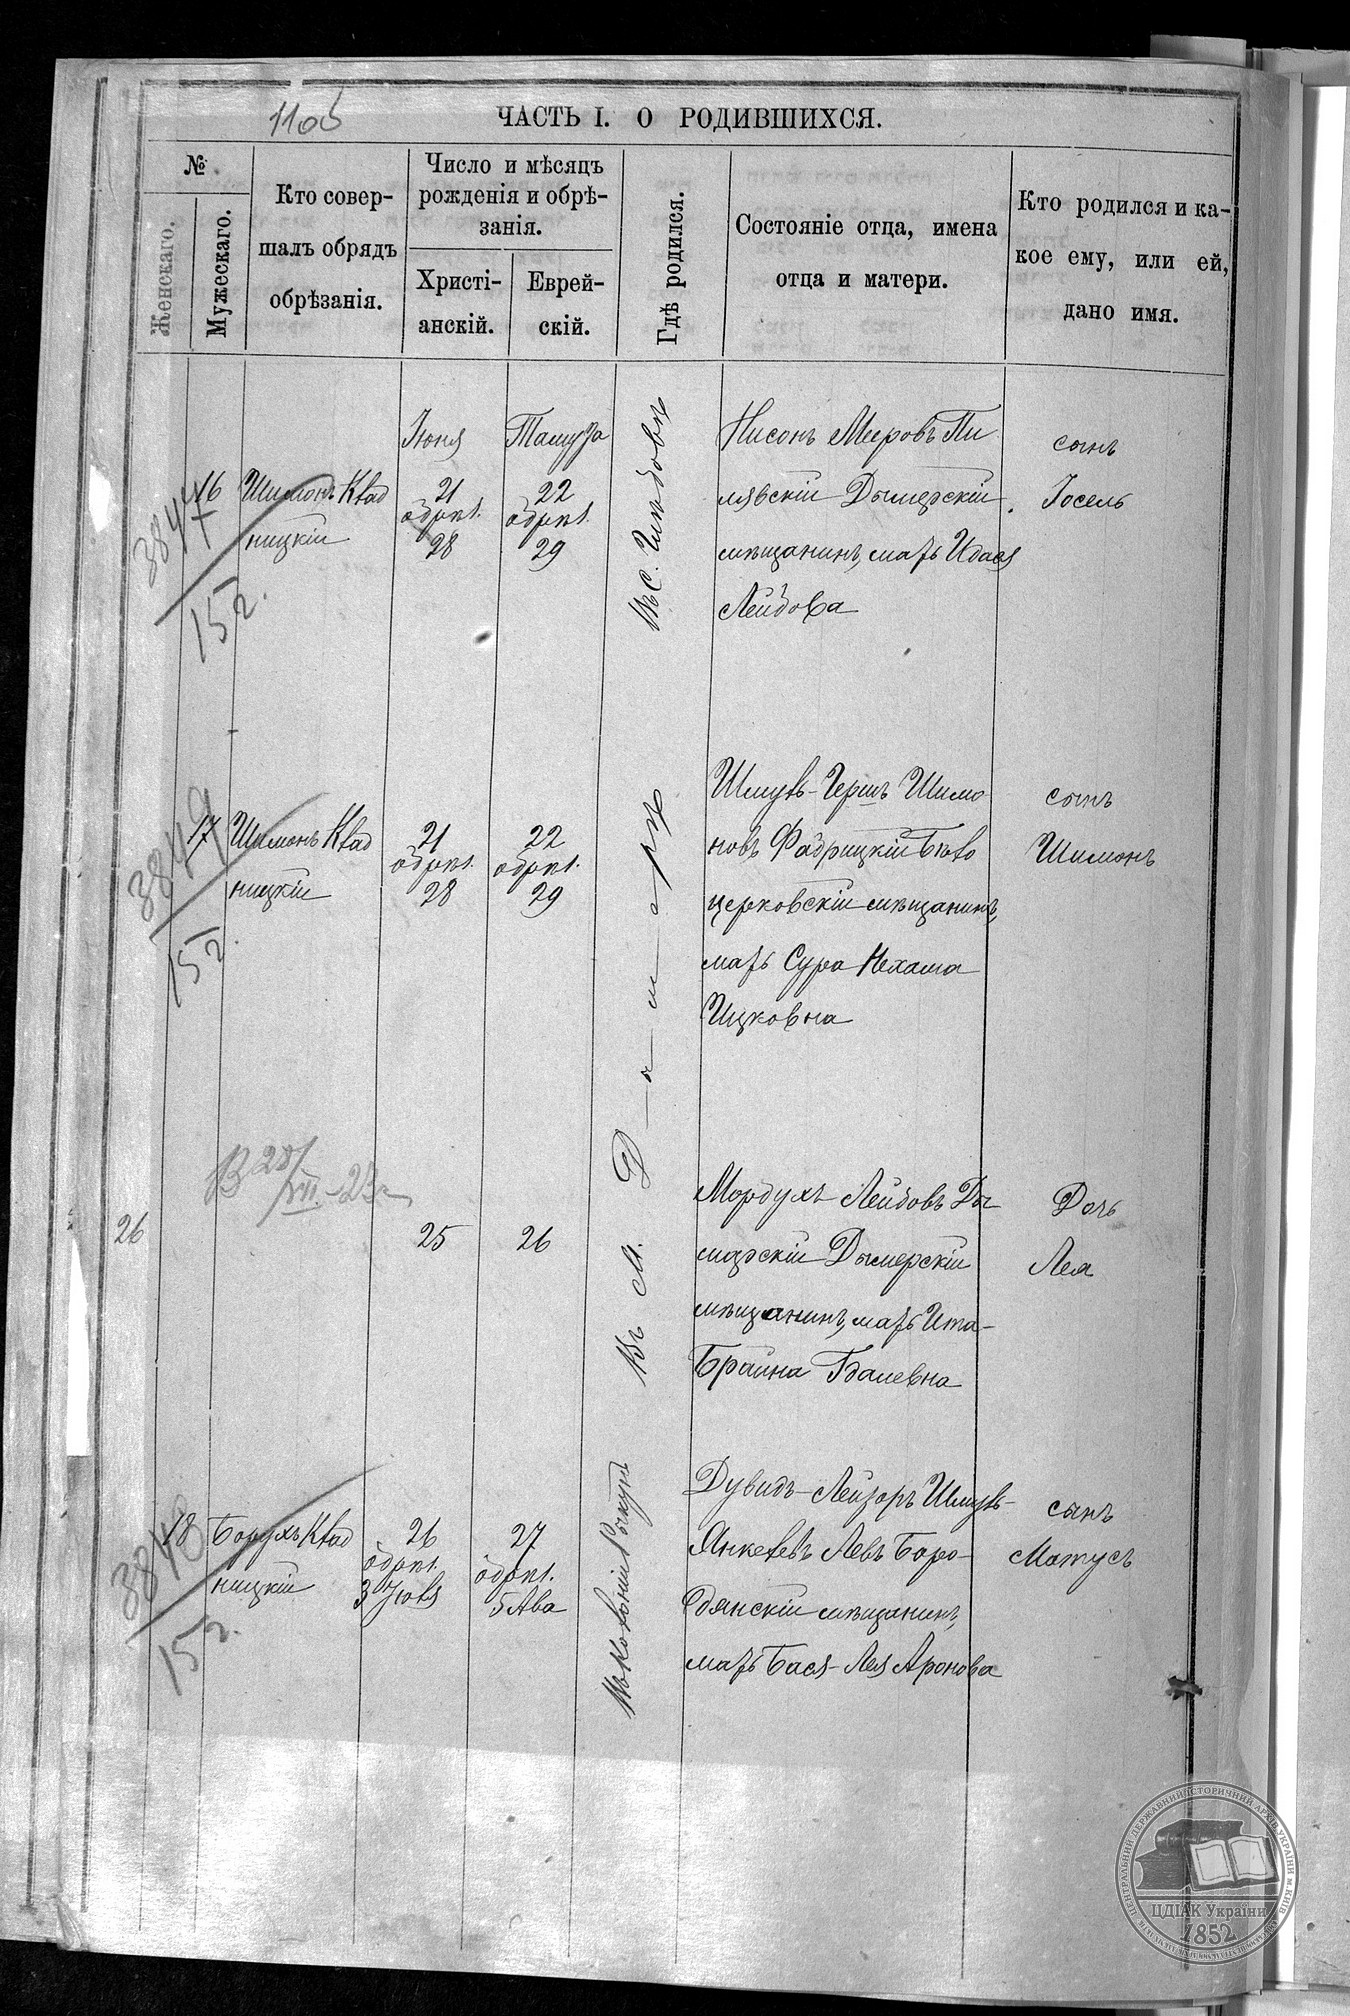 1105
ЧАСТЬ I. О РОДИВШИХСЯ.
№
Женскаго.
Мужескаго.
Кто совер-
шалъ обрядъ
обрѣзанія.
Число и мѣсяцъ
рожденія и обрѣ-
занія.
Христі-
анскій.
Еврей-
скій.
Гдѣ родился.
Состояніе отца, имена
отца и матери.
Кто родился и ка-
кое ему, или ей,
дано имя.
3844
15 г.
16
Шимонъ Квад
ницкій
Іюня
21
обрѣз.
28
Тамуза
22
обрѣз.
29
Въ с.
Нисонъ Мееровъ Пи
лявскій Дымерскій
мѣщанинъ, мать Идася
Лейбова
сынъ
Іосель
3849
15 г.
17
Шимонъ Квад
ницкій
21
обрѣз.
28
22
обрѣз.
29
Въ м. Дымерѣ
Шмуль-Гершъ Шимо
новъ Фабрицкій Бѣло
церковскій мѣщанинъ,
мать Сура Нехама
Ицковна
сынъ
Шимонъ
В 28/VII-23 г
26
25
26
Мордухъ Лейбовъ Ды
марскій Дымерскій
мѣщанинъ, мать Ита-
Брайна Гдалевна
Дочь
Лея
3848
15 г.
18
Борухъ Квад
ницкій
26
обрѣз.
3 Іюля
27
обрѣз.
5 Ава
Дувидъ-Лейзоръ Шмуль-
Янкелевъ Левъ Боро-
дянскій мѣщанинъ,
мать Бася-Лея Аронова
сынъ
Матусъ
ЦЕНТРАЛЬНИЙ ДЕРЖАВНИЙ ІСТОРИЧНИЙ АРХІВ УКРАЇНИ м.КИЇВ
ЦДІАК України
1852